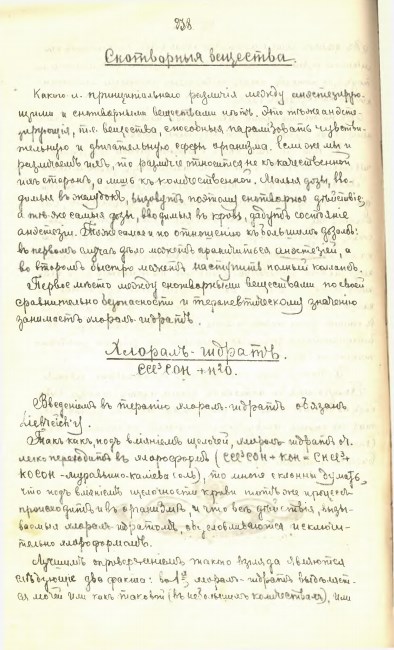 238
Снотворныя вещества.
Какого л. принципіальнаго различія между анэстезирую-
щими и снотворными веществами нѣтъ. Это тѣ же анэсте-
зирующія, т.е. вещества, способныя парализовать чувстви-
тельную и двигательную сферы организма. Если же мы и
различаемъ ихъ, то различіе относится не къ качественной
ихъ сторонѣ, а лишь къ количественной. Малыя дозы, вво-
димыя въ желудокъ, вызовутъ поэтому снотворное дѣйствіе,
а тѣ же самыя дозы, вводимыя въ кровь, дадутъ состояніе
анэстезіи. Тоже самое и по отношенію къ большимъ дозамъ:
въ первомъ случаѣ дѣло можетъ ограничиться анэстезіей, а
во второмъ быстро можетъ наступить полный коллапсъ.
Первое мѣсто между снотворными веществами по своей
сравнительно безопасности и терапевтическому значенію
занимаетъ хлоралъ-гидратъ.
Хлоралъ-гидратъ.
CCl³COH + H²O.
Введеніемъ въ терапію хлоралъ-гидратъ обязанъ
Liebreich'у.
Такъ какъ, подъ вліяніемъ щелочей, хлоралъ-гидратъ
легко переходитъ въ хлороформъ (CCl³COH + KOH = CHCl³ +
KOCOH - муравьино-каліева соль), то многіе склонны думать,
что подъ вліяніемъ щелочности крови тотъ же процессъ
происходитъ и въ организмѣ и что всѣ дѣйствія, вызы-
ваемыя хлоралъ-гидратомъ, обусловливаются исключи-
тельно хлороформомъ.
Лучшимъ опроверженіемъ такого взгляда являются
слѣдующіе два факта: во 1ыхъ, хлоралъ-гидратъ выдѣляет-
ся мочей или какъ таковой (въ небольшихъ количествахъ), или